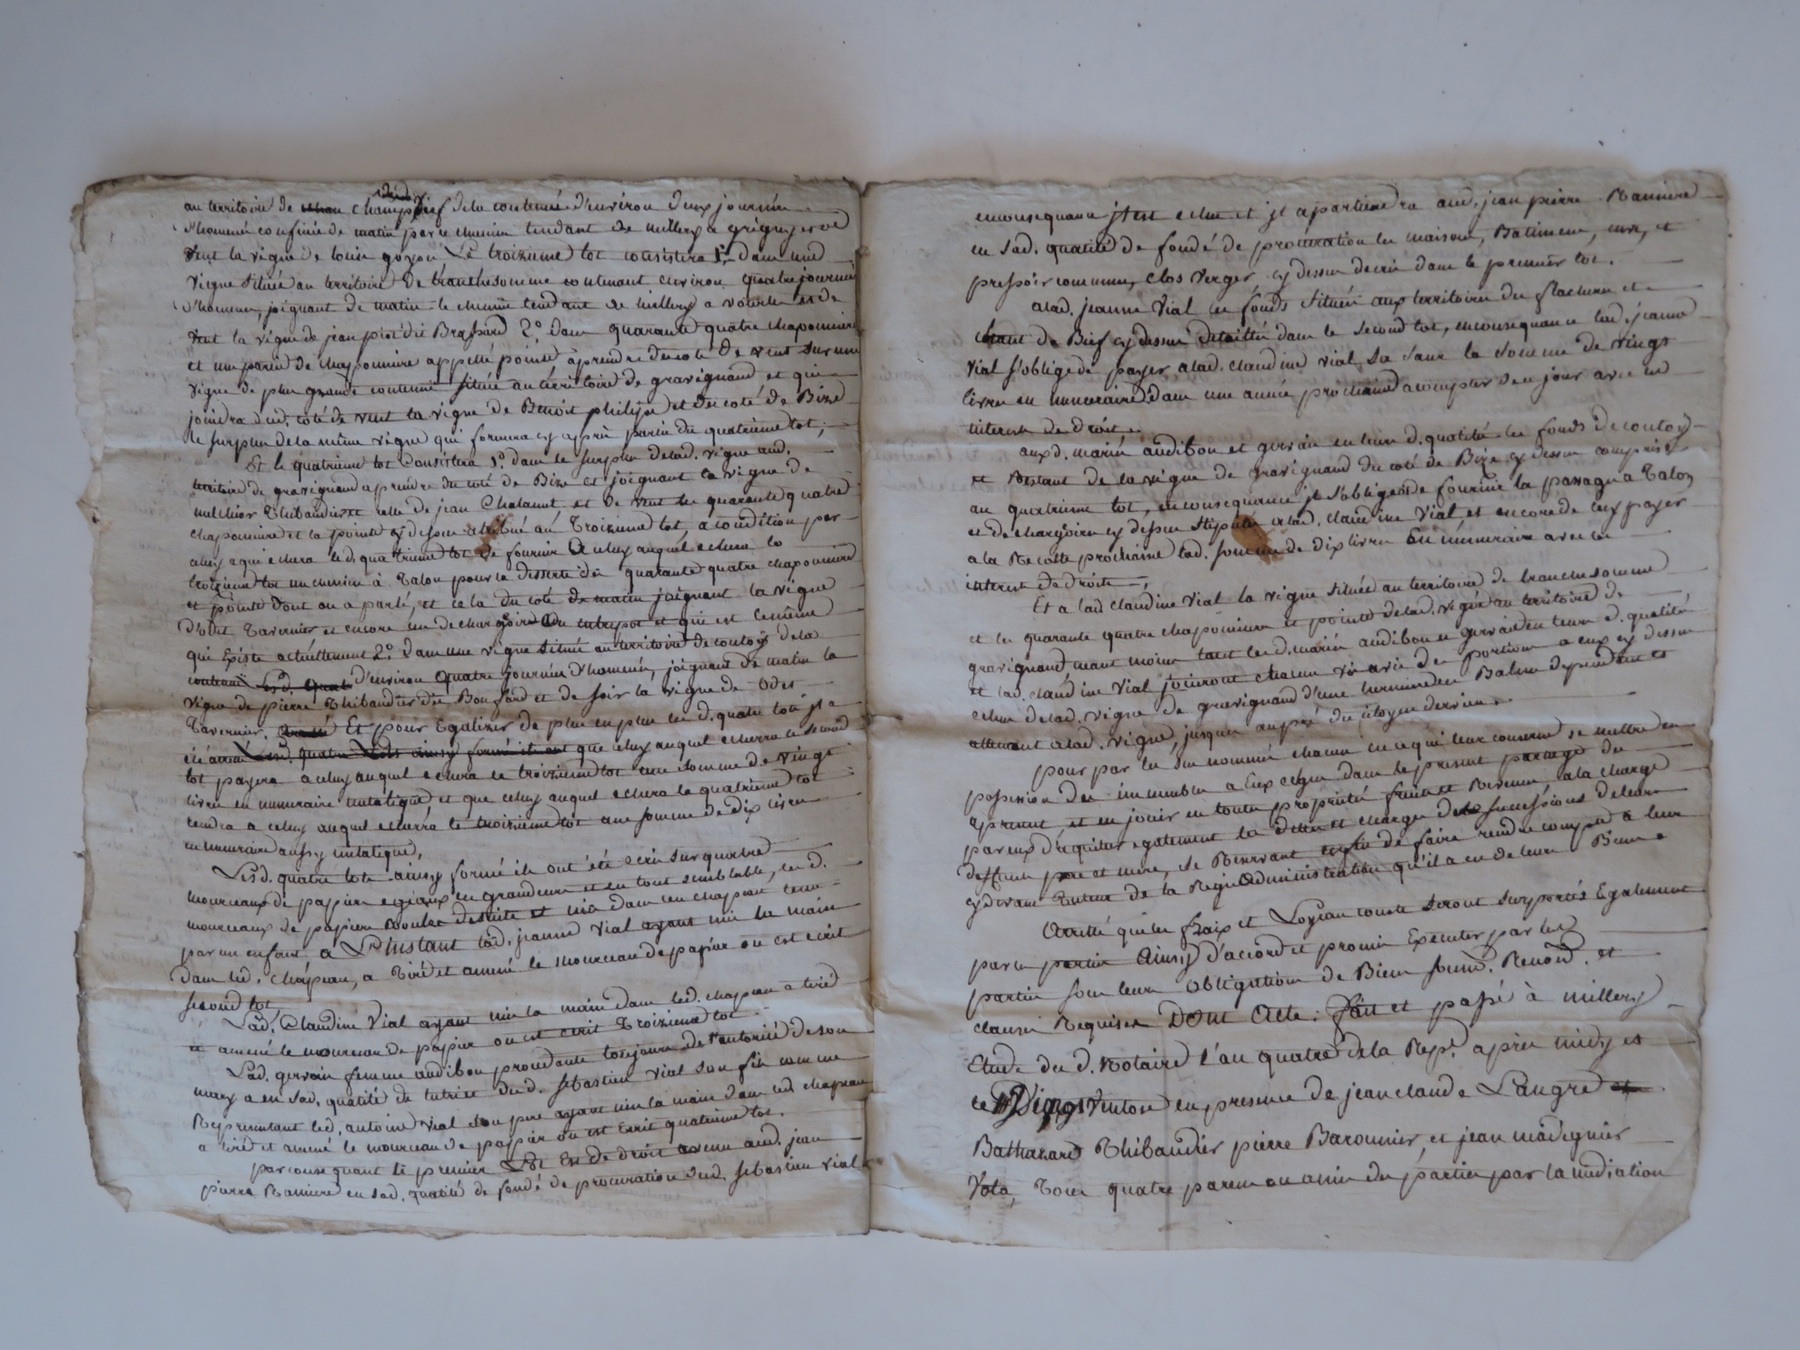 au territoire de champ Bief de la contenue d'environ deux journées
d'homme confinée de matin par le chemin tendant de millery a grigny et de
vent la vigne de louis goyon Le troizieme lot consistera 1° dans une
vigne située au territoire de tranchesomme contenant environ quatre journées
d'hommes, joignant de matin le chemin tendant de millery a vourle et de
vent la vigne de jean dit Brossard 2° dans quarante quatre chaponnieres
et une partie de chaponniere appellé pointe à prendre du coté de vent sur une
vigne de plus grande contenue située au térritoire de gravignand et qui
joindra dud. coté de vent la vigne de Benoit philip et du coté de Bize
le surplus de la même vigne qui formera cy après partie du quatrieme lot;
Et le quatrieme lot Consistera 1° dans le surplus de lad. vigne aud.
territoire de gravignand a prendre du coté de Bize et joignant la vigne de
melchior Thibaudier et celle de jean Chalamet et de vent les quarante quatre
chaponniere et la pointe cy dessus attribué au Troizieme lot a condition par
celuy a qui echera led. quatrieme lot de fournir a celuy auquel echera le
troizieme lot un chemin à Talon pour la desserte des quarante quatre chaponnieres
et pointe dont on a parlé, et cela du coté de matin joignant la vigne
d'odet Tavernier et encore un dechargeoire ou entrepot et qui est lesmême
qui Existe actuellement 2° dans une vigne située au territoire de coutoy de la
contenue d'environ quatre journées d'homme, joignant de matin la
vigne de pierre Thibaudier dit Bonfond et de soir la vigne de odet
Tavernier. Et pour Egalizer de plus en plus les d. quatre lots jl a
été arrété que celuy auquel echerra le second
lot payera a celuy auquel echera le troizieme lot une somme de vingt
livres en numeraire metalique et que celuy auquel echera le quatrieme lot
rendra a celuy auquel echerra le troizieme lot une somme de dix livres
en numeraire aussy metalique,
Lesd. quatre lots ainsy formé ils ont été ecris sur quatre
mourceaux de papiers egeaux en grandeur et en tout semblable, les d.
mourceaux de papiers Roulés desuite et mis dans un chapeau tenu
par un enfant, a L'Instant lad. jeanne vial ayant mis la main
dans led. chapeau, a Tiré et amené le mourceau de papier ou est ecrit
second lot
Lad. Claudine Vial ayant mis la main dans led. chapeau a tiré
et amené le mourceau de papier ou est ecrit Troizieme lot
Lad. gervais femme audibou procedante toujours de l'autorité de son
mary a en sad. quatité de tutrice dud. sebastien vial son fils comme
Representant led. antoine vial son pere ayant mis la main dans led chapeau
a tiré et amené le mourceau de papier ou est Ecrit quatrieme lot.
par consequant le premier Lot Est de droit avenu aud. jean
pierre Raniere en sad. quatité de fondé de procuration dud. sebastien vial
en consequance jl est echu et jl apartiendra aud. jean pierre Raniere
en sad. quatité de fondé de procuration les maisons, Batimens, cuve, et
pressoir communs, clos verger cy dessus decrit dans le premier lot.
a lad. jeanne Vial les fonds situées aux territoires du flacheres et
champ de Bief cy dessus detaillée dans le second lot, en consequance lad. jeanne
vial s'oblige de payer a lad. claudine vial sa sœur la somme de vingt
livres en numeraire dans une année prochaine a compter de ce jour avec les
interets de droit.
auxd. mariés audibou et gervais en leurs d. quatité les fonds de coutoy
et restant de la vigne de gravignand du coté de Bize cy dessus comprise
au quatrieme lot, en consequance jls s'obligent de fournir la passage a Talon
et dechargeoire cy dessus stipulé a lad. claudine Vial et encore de luy payer
a la Recolte prochaine lad. somme de dix livres en numeraire avec les
interets de droits,
Et a lad claudine vial la vigne située au territoire de tranchesomme
et les quarante quatre chaponnieres et pointe de lad. vigne au territoire de
gravignand neant moins tant les d. mariés audibou et gervais en leurs d. quatité
et lad. claudine vial jouiront chacun vis avis des portions a eux cy dessus
echue de lad. vigne de gravignand d'une hermiere en Balme dependante et
attenant a lad. vigne, jusques aupré du citoyen dervieu.
pour par les sus nommés chacun en ce qui leur concerne se mettre en
possession des immeubles a Eux echus dans le present partage des
a present et en jouir en toute propriétés fruits et Revenus a la charge
par eux d'aquiter egalement les dettes et charges des successions de leurs
deffunts pere et mere, se Reservant de faire rendre compte a leur
cydevant Tuteur de la Regie administration qu'il a eu de leurs Biens
Arretté que les fraix et Loyeau couts seront suportés Egalement
par les parties Ainsy d'acord et promis Executer par les
parties sous leurs obligations de Biens soum. Renond. et
clauses Requises Dont Acte. fait et passé à millery
Etude du d. notaire l'an quatre de la Rep. après midy et
le vingt Ventose en presence de jean claude Langre
Balthazard Thibaudier pierre Barounier et jean
Vola, Tous quatre parens ou amis des parties par la mediation